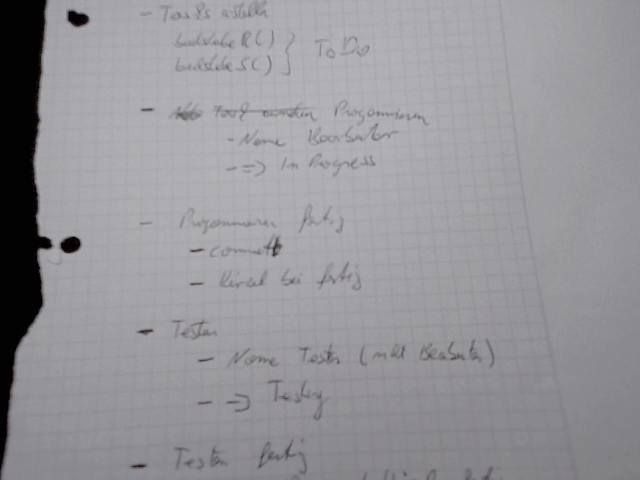 - Tasks erstellen
buchstabeR() } ToDo
buchstabeS()
- Programmieren
- Name Bearbeiter
- => In Progress
- Programmieren fertig
- commit
- bei fertig
- Testen
- Name Tester (nicht Bearbeiter)
- => Testing
- Testen fertig